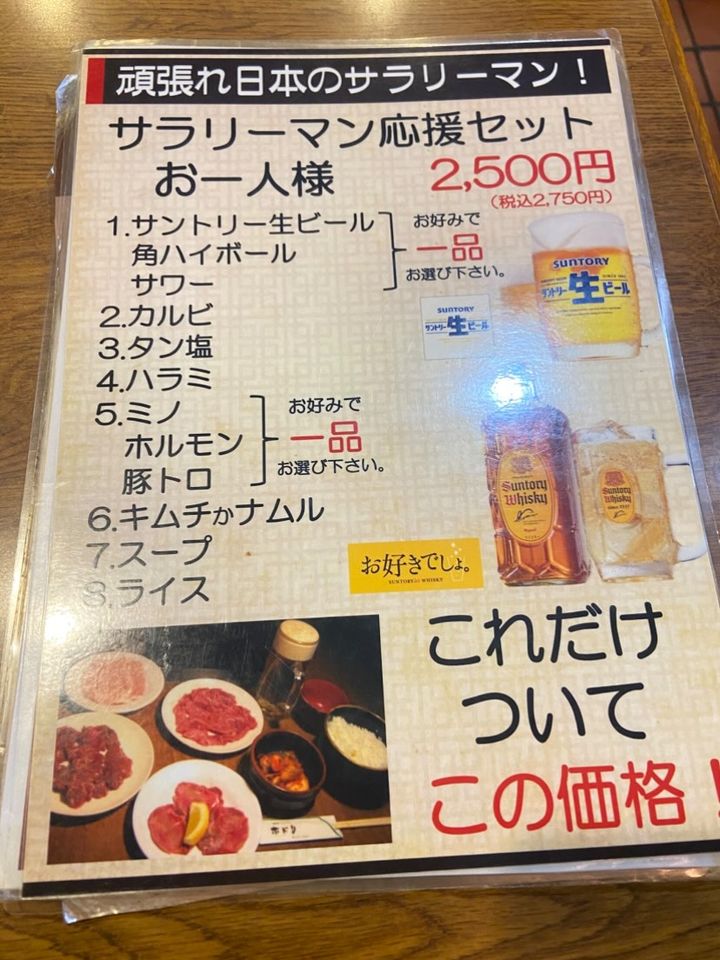 頑張れ日本のサラリーマン！
サラリーマン応援セット
お一人様 2,500円
（税込2,750円）
1.サントリー生ビール
角ハイボール
サワー
お好みで
一品
お選び下さい。
2.カルビ
3.タン塩
4.ハラミ
5.ミノ
ホルモン
豚トロ
お好みで
一品
お選び下さい。
6.キムチかナムル
7.スープ
8.ライス
SUNTORY
サントリー生ビール
SUNTORY
サントリー生ビール
Suntory
Whisky
Suntory
Whisky
お好きでしょ。
SUNTORY WHISKY
これだけ
ついて
この価格！